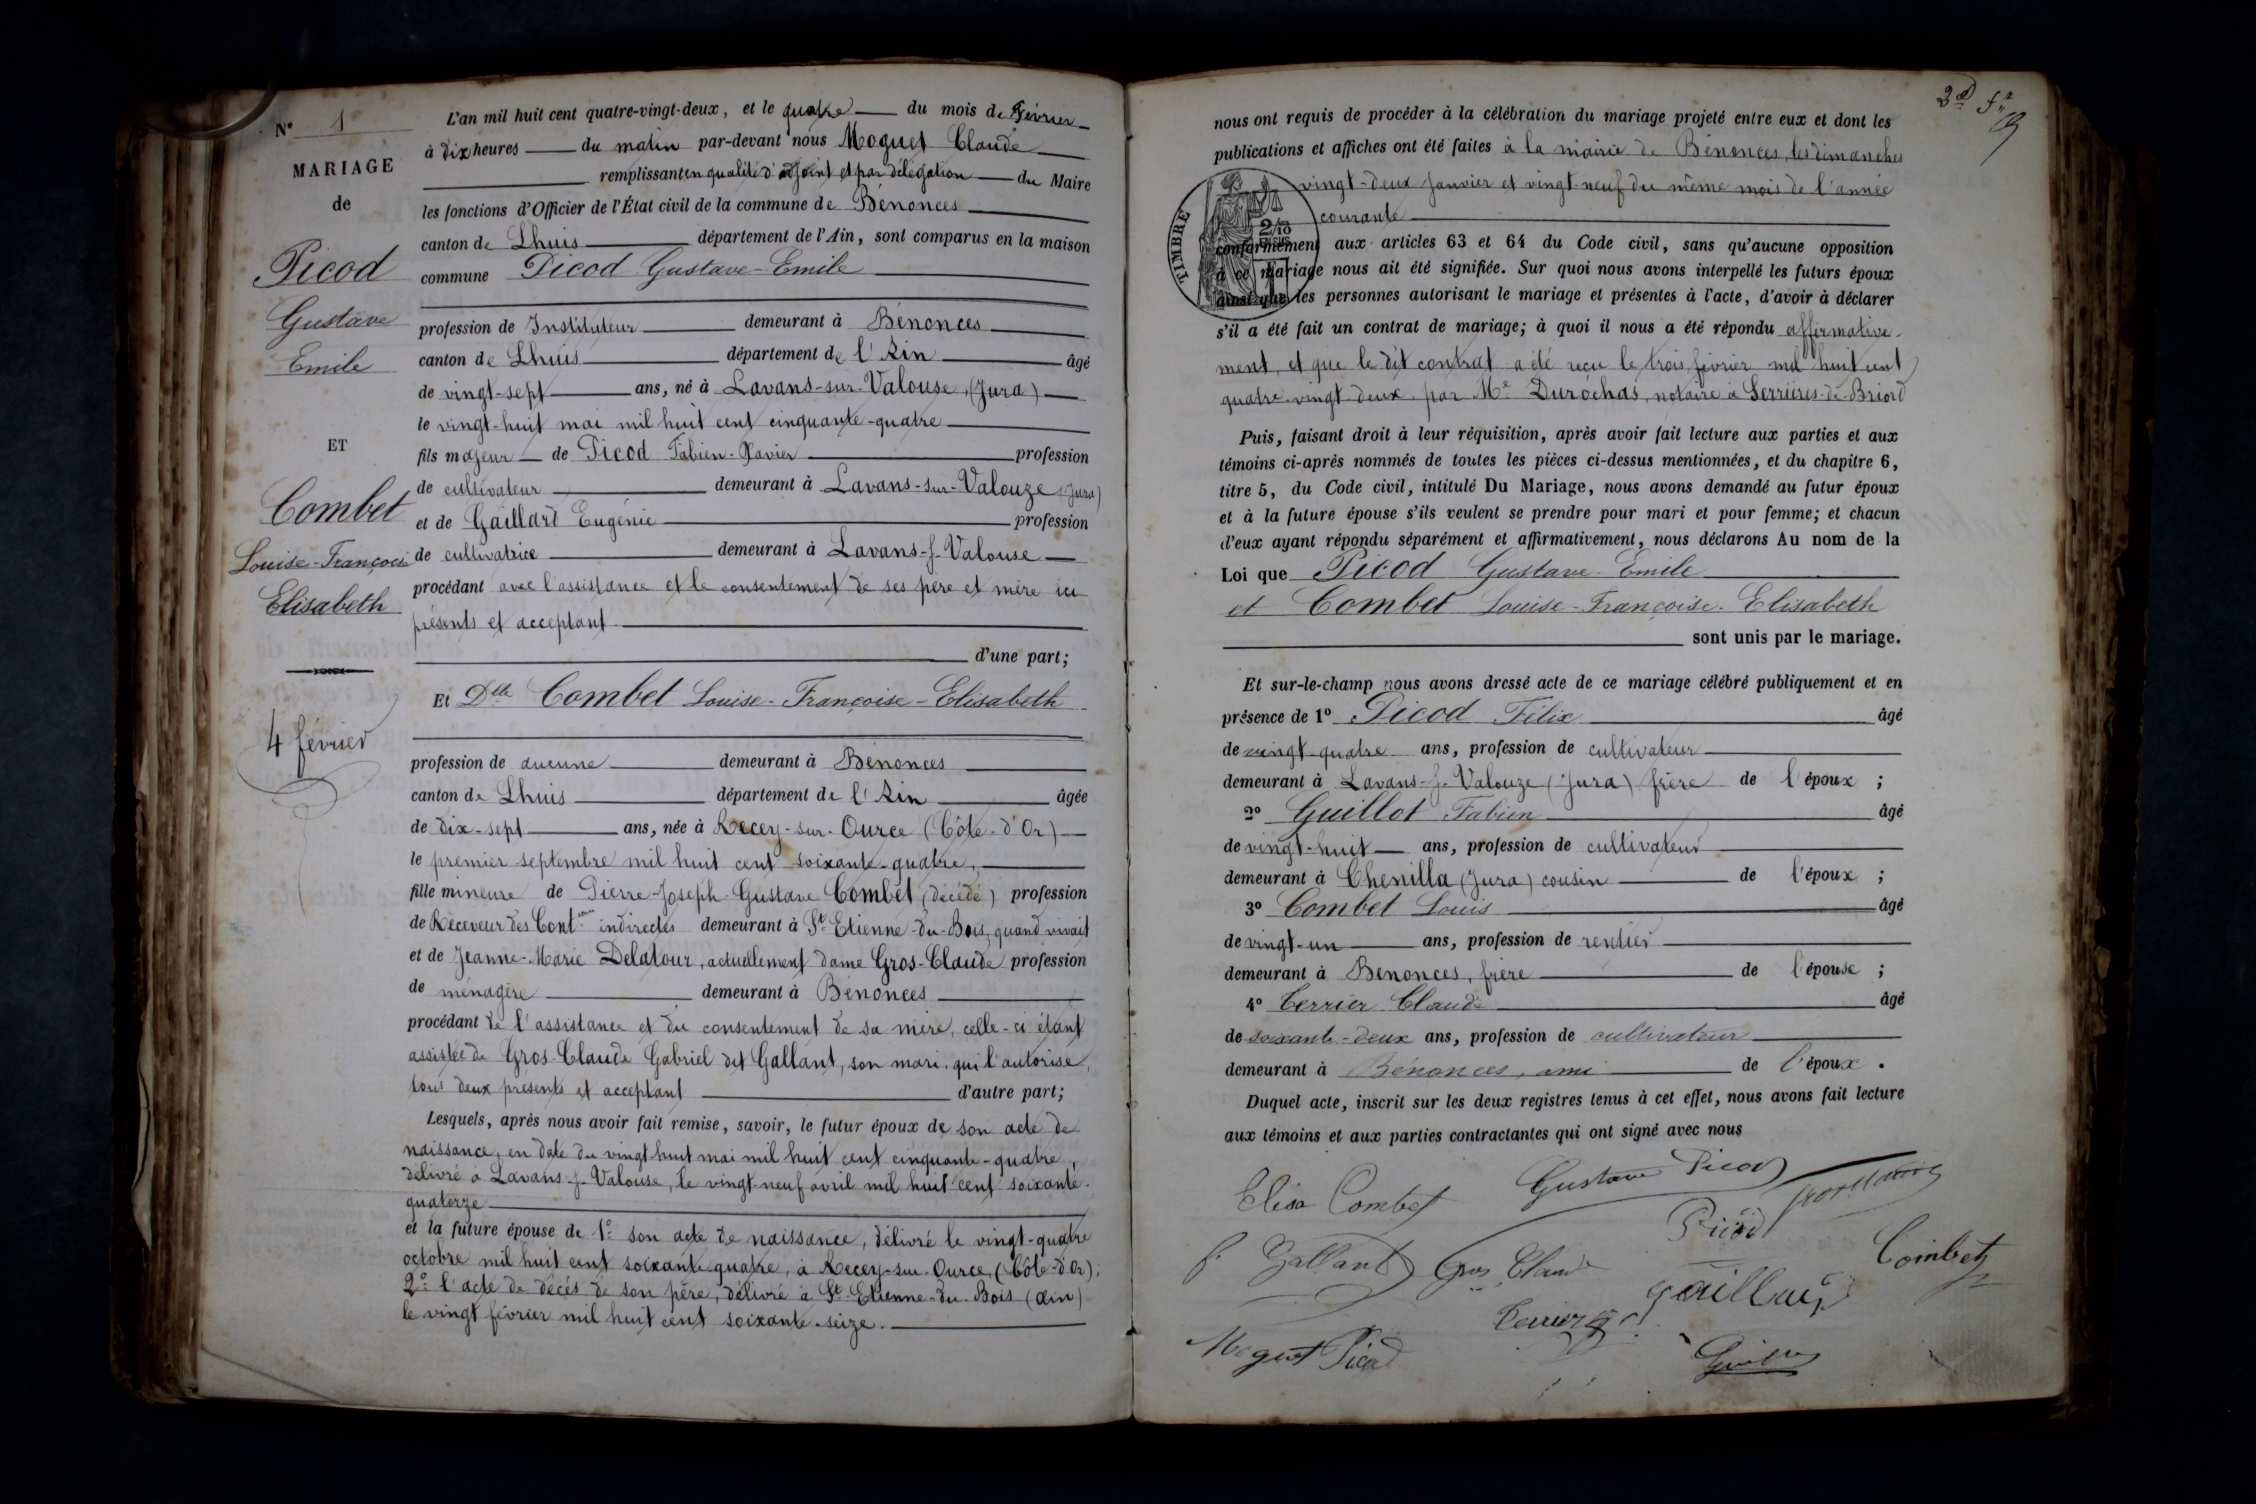 N° 1
MARIAGE
de
Picod
Gustave
Emile
ET
Combet
Louise-Françoise
Elisabeth
4 février
L'an mil huit cent quatre-vingt-deux, et le quatre du mois de Février
à dix heures du matin par-devant nous Moguet Claude
remplissant en qualité d'adjoint et par délégation du Maire
les fonctions d'Officier de l'État civil de la commune de Bénonces
canton de Lhuis département de l'Ain, sont comparus en la maison
commune Picod Gustave-Emile
profession de Instituteur demeurant à Bénonces
canton de Lhuis département de l'Ain âgé
de vingt-sept ans, né à Lavans-sur-Valouse, (Jura)
le vingt-huit mai mil huit cent cinquante-quatre
fils majeur de Picod Fabien-Xavier profession
de cultivateur demeurant à Lavans-sur-Valouze (Jura)
et de Gaillard Eugénie profession
de cultivatrice demeurant à Lavans-s-Valouse
procédant avec l'assistance et le consentement de ses père et mère ici
présents et acceptant
d'une part;
Et Dlle Combet Louise-Françoise-Elisabeth
profession de aucune demeurant à Bénonces
canton de Lhuis département de l'Ain âgée
de dix-sept ans, née à Recey-sur-Ource (Côte-d'Or)
le premier septembre mil huit cent soixante-quatre,
fille mineure de Pierre-Joseph-Gustave Combet (décédé) profession
de Receveur des Contions indirectes demeurant à St Etienne-du-Bois, quand vivait
et de Jeanne-Marie Delatour, actuellement dame Gros-Claude profession
de ménagère demeurant à Bénonces
procédant de l'assistance et du consentement de sa mère, celle-ci étant
assistée de Gros-Claude Gabriel dit Gallant, son mari, qui l'autorise,
tous deux présents et acceptant d'autre part;
Lesquels, après nous avoir fait remise, savoir, le futur époux de son acte de
naissance, en date du vingt-huit mai mil huit cent cinquante-quatre,
délivré à Lavans-s-Valouse, le vingt-neuf avril mil huit cent soixante-
quatorze
et la future épouse de 1° son acte de naissance, délivré le vingt-quatre
octobre mil huit cent soixante quatre, à Recey-sur-Ource, (Côte-d'Or);
2° l'acte de décès de son père, délivré à St Etienne-du-Bois (Ain)
le vingt février mil huit cent soixante-seize.
nous ont requis de procéder à la célébration du mariage projeté entre eux et dont les
publications et affiches ont été faites à la mairie de Bénonces, les dimanches
vingt-deux janvier et vingt-neuf du même mois de l'année
courante
TIMBRE
2/10
conformément aux articles 63 et 64 du Code civil, sans qu'aucune opposition
à ce mariage nous ait été signifiée. Sur quoi nous avons interpellé les futurs époux
ainsi que les personnes autorisant le mariage et présentes à l'acte, d'avoir à déclarer
s'il a été fait un contrat de mariage; à quoi il nous a été répondu affirmative-
ment, et que le dit contrat a été reçu le trois février mil huit cent
quatre-vingt-deux par Me Durochas, notaire à Serrières-de-Briord
Puis, faisant droit à leur réquisition, après avoir fait lecture aux parties et aux
témoins ci-après nommés de toutes les pièces ci-dessus mentionnées, et du chapitre 6,
titre 5, du Code civil, intitulé Du Mariage, nous avons demandé au futur époux
et à la future épouse s'ils veulent se prendre pour mari et pour femme; et chacun
d'eux ayant répondu séparément et affirmativement, nous déclarons Au nom de la
Loi que Picod Gustave-Emile
et Combet Louise-Françoise-Elisabeth
sont unis par le mariage.
Et sur-le-champ nous avons dressé acte de ce mariage célébré publiquement et en
présence de 1° Picod Félix âgé
de vingt-quatre ans, profession de cultivateur
demeurant à Lavans-s-Valouze (Jura) frère de l'époux ;
2° Guillot Fabien âgé
de vingt-huit ans, profession de cultivateur
demeurant à Chenilla (Jura) cousin de l'époux ;
3° Combet Louis âgé
de vingt-un ans, profession de rentier
demeurant à Bénonces, frère de l'épouse ;
4° Terrier Claude âgé
de soixante-deux ans, profession de cultivateur
demeurant à Bénonces, ami de l'époux .
Duquel acte, inscrit sur les deux registres tenus à cet effet, nous avons fait lecture
aux témoins et aux parties contractantes qui ont signé avec nous
Elisa Combet Gustave Picod
Picod
Gallant Gros Claude Combet
Terrier Gaillard
Moguet Picod